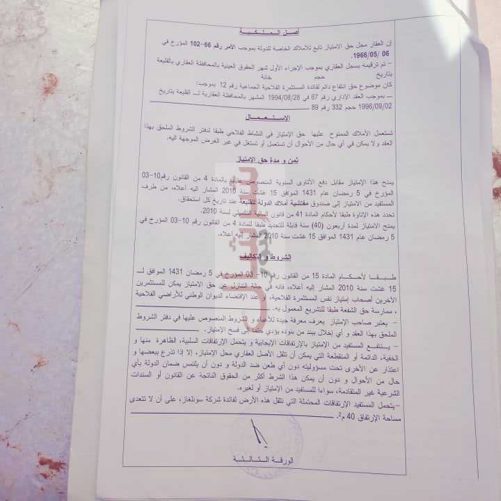 أصل الملكية
إن العقار محل حق الامتياز تابع للأملاك الخاصة للدولة بموجب الأمر رقم 66-102 المؤرخ في
06 /05/1966.
- تم ترقيمه بسجل العقاري بموجب الإجراء الأول لشهر الحقوق العينية بالمحافظة العقارية بالقليعة
بتاريخ حجم خانة
كان موضوع حق انتفاع دائم لفائدة المستثمرة الفلاحية الجماعية رقم 12 بموجب:
- بموجب العقد الإداري رقم 67 في 1994/06/26 المشهر بالمحافظة العقارية لـ القليعة بتاريخ
1996/09/02 حجم 332 رقم 89
الإستعمال
تستعمل الأملاك الممنوح عليها حق الإمتياز في النشاط الفلاحي طبقا لدفتر الشروط الملحق بهذا
العقد ولا يمكن في أي حال من الأحوال أن تستعمل أو تستغل في غير الغرض الموجهة إليه.
ثمن و مدة حق الإمتياز
يمنح هذا الإمتياز مقابل دفع الأتاوى السنوية المنصوص عليها بالمادة 4 من القانون رقم 10-03
المؤرخ في 5 رمضان عام 1431 الموافق 15 غشت سنة 2010 المشار إليه أعلاه، من طرف
المستفيد من الامتياز إلى صندوق مفتشية أملاك الدولة القليعة عند تاريخ كل استحقاق.
تحدد هذه الأتاوة طبقا لأحكام المادة 41 من قانون المالية التكميلي لسنة 2010.
يمنح الإمتياز لمدة أربعون (40) سنة قابلة للتجديد طبقا لمادة 4 من القانون رقم 10-03 المؤرخ في
5 رمضان عام 1431 الموافق 15 غشت سنة 2010 المشار إليه أعلاه.
الشروط و التكاليف
طبقا لأحكام المادة 15 من القانون رقم 10-03 المؤرخ في 5 رمضان 1431 الموافق لـ
15 غشت سنة 2010 المشار إليه أعلاه، فإنه في حالة التنازل عن حق الامتياز يمكن للمستثمرين
الآخرين أصحاب إمتياز نفس المستثمرة الفلاحية، أو عند الإقتضاء الديوان الوطني للأراضي الفلاحية
، ممارسة حق الشفعة طبقا للتشريع المعمول به.
- يعتبر صاحب الإمتياز يعرف معرفة جيدة للأعباء و الشروط المنصوص عليها في دفتر الشروط
الملحق بهذا العقد و أي إخلال ببند من بنوده يؤدي إلى فسخ الإمتياز.
- يستنتفع المستفيد من الإمتياز بالإرتفاقات الإيجابية و يتحمل الإرتفاقات السلبية، الظاهرة منها و
الخفية، الدائمة أو المتقطعة التي يمكن أن تثقل الأصل العقاري محل الإمتياز، إلا إذا تذرع ببعضها و
اعتذار عن الأخرى تحت مسؤوليته دون أي طعن ضد الدولة و دون أن يلتمس ضمان الدولة بأي
حال من الأحوال و دون أن يمكن هذا الشرط أكثر من الحقوق الناتجة عن القانون أو السندات
الشرعية غير المتقادمة، سواءا للمستفيد من الإمتياز أو لغيره.
- يتحمل المستفيد الإرتفاقات المحتملة التي تثقل هذه الأرض لفائدة شركة سونلغاز، على أن لا تتعدى
مساحة الإرتفاق 40 م2.
الورقة الثالثة